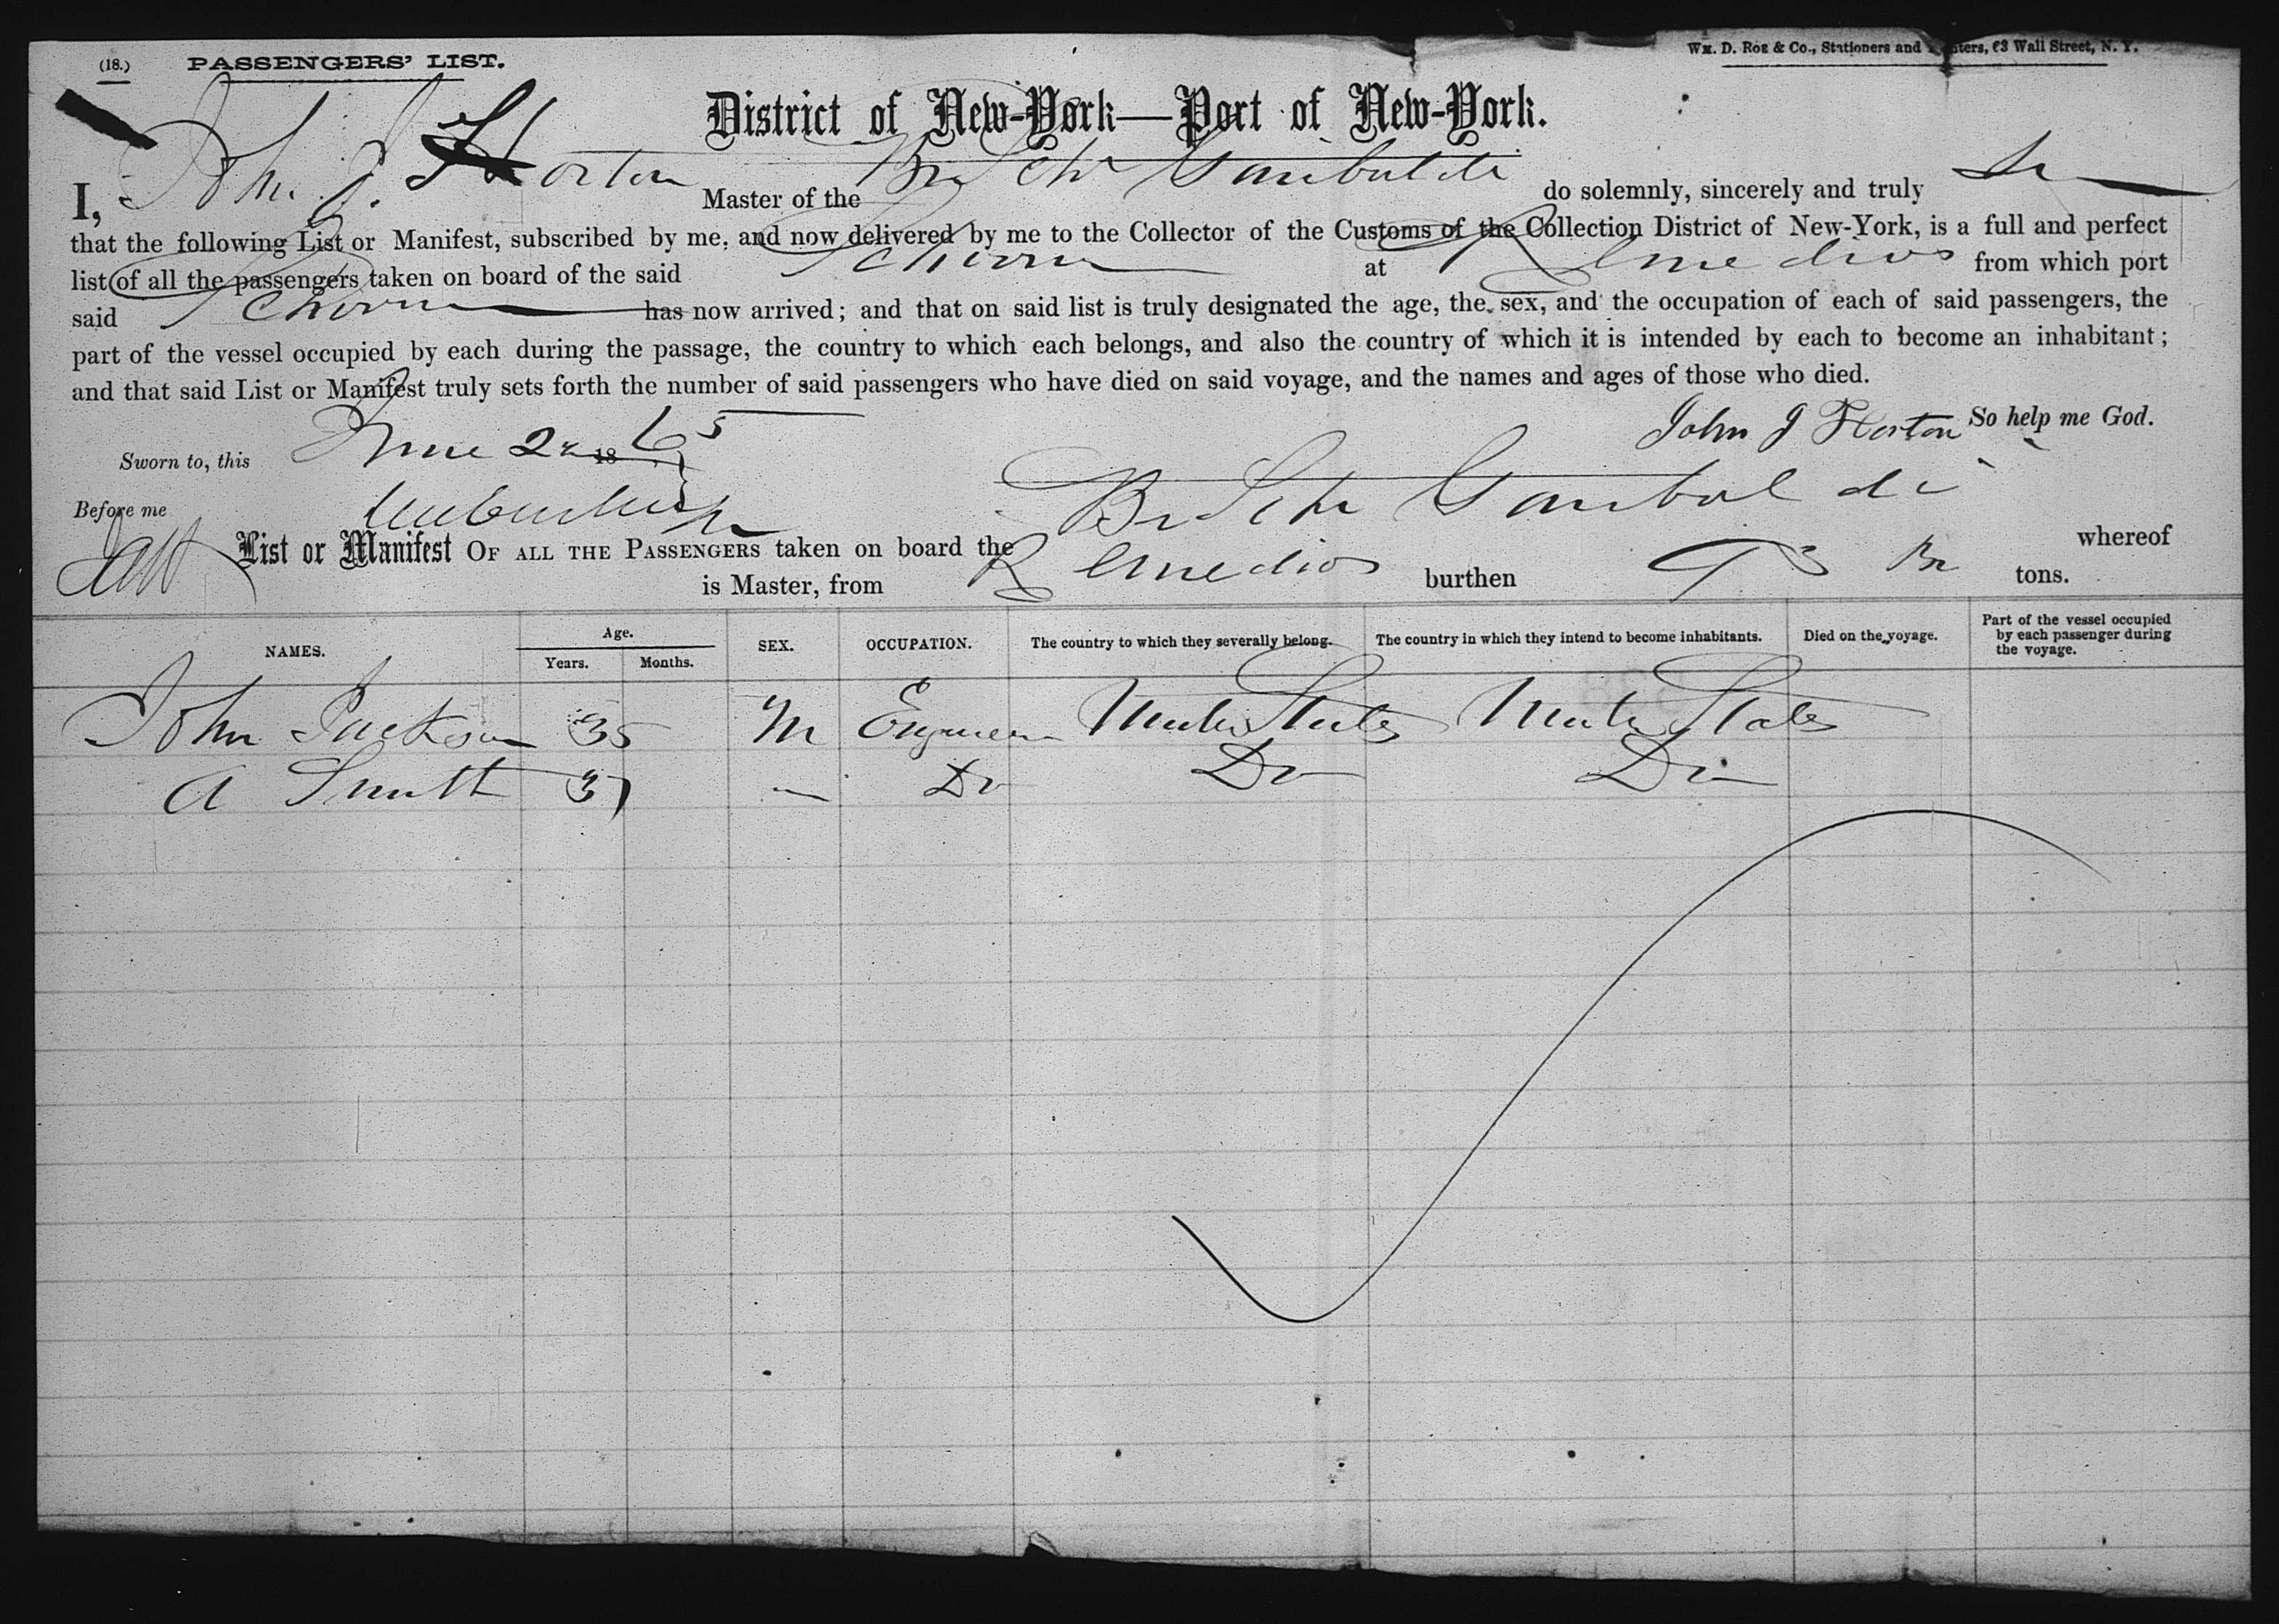 (18.) PASSENGERS' LIST. Wm. D. Roe & Co., Stationers and Printers, 63 Wall Street, N. Y.
District of New-York—Port of New-York.
I, John J. Horton Master of the Br Schr Garibaldi do solemnly, sincerely and truly
that the following List or Manifest, subscribed by me, and now delivered by me to the Collector of the Customs of the Collection District of New-York, is a full and perfect
list of all the passengers taken on board of the said Schooner at Remedios from which port
said Schooner has now arrived; and that on said list is truly designated the age, the sex, and the occupation of each of said passengers, the
part of the vessel occupied by each during the passage, the country to which each belongs, and also the country of which it is intended by each to become an inhabitant;
and that said List or Manifest truly sets forth the number of said passengers who have died on said voyage, and the names and ages of those who died.
John J Horton So help me God.
Sworn to, this June 2 1865
Before me
List or Manifest OF ALL THE PASSENGERS taken on board the Br Schr Garibaldi whereof
is Master, from Remedios burthen 93 tons.
NAMES. Age. Years. Months. SEX. OCCUPATION. The country to which they severally belong. The country in which they intend to become inhabitants. Died on the voyage. Part of the vessel occupied by each passenger during the voyage.
John Jackson 35 M Engineer United States United States
A Smith 37 — Do Do Do